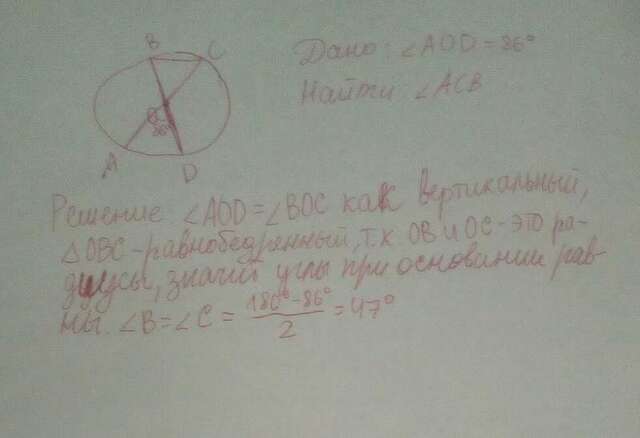 B C
Дано: ∠AOD = 86°
Найти ∠ACB
O
86°
A D
Решение ∠AOD = ∠BOC как вертикальный,
△OBC - равнобедренный, т.к OB и OC - это ра-
диусы, значит углы при основании рав-
ны. ∠B = ∠C = (180° - 86°) / 2 = 47°